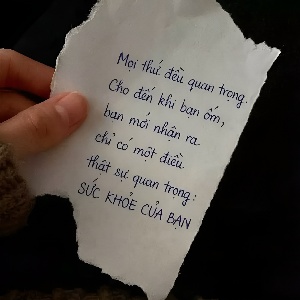 Mọi thứ đều quan trọng.
Cho đến khi bạn ốm,
bạn mới nhận ra
chỉ có một điều
thật sự quan trọng:
SỨC KHỎE CỦA BẠN